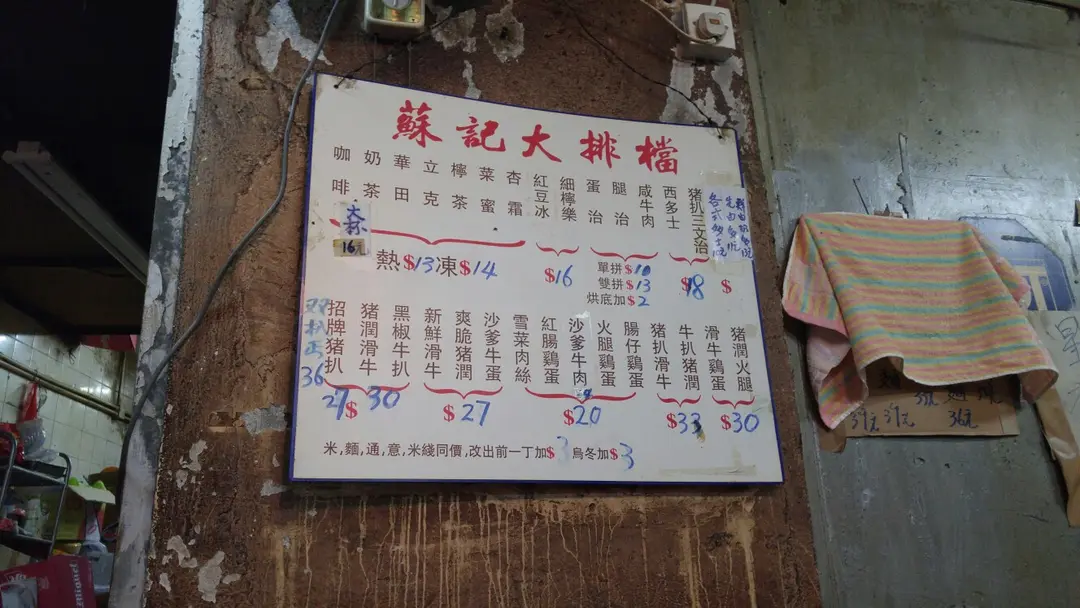 蘇記大排檔
咖啡 奶茶 華田 立克 檸茶 菜蜜 杏霜 紅豆冰 細檸樂 蛋治 腿治 咸牛肉 西多士 豬扒三文治
16元
熱$13凍$14 $16 單拼$10 $18 $
雙拼$13
烘底加$2
招牌豬扒 豬潤滑牛 黑椒牛扒 新鮮滑牛 爽脆豬潤 沙爹牛蛋 雪菜肉絲 紅腸雞蛋 沙爹牛肉 火腿雞蛋 腸仔雞蛋 豬扒滑牛 牛扒豬潤 滑牛雞蛋 豬潤火腿
36
27$ 30 $27 $20 $33 $30
米,麵,通,意,米綫同價,改出前一丁加$3 烏冬加$3
36元